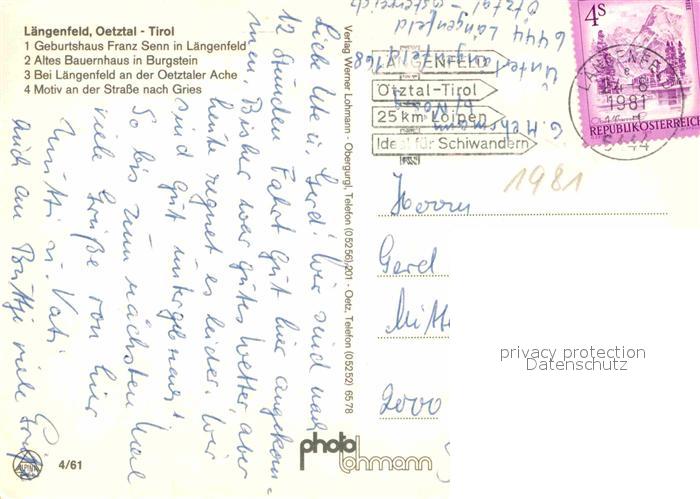 Längenfeld, Oetztal - Tirol
1 Geburtshaus Franz Senn in Längenfeld
2 Altes Bauernhaus in Burgstein
3 Bei Längenfeld an der Oetztaler Ache
4 Motiv an der Straße nach Gries
Liebe Ute u. Gerd! Wir sind nach
12 Stunden Fahrt gut hier angekom-
men. Bisher war gutes Wetter aber
heute regnet es leider. Wir
sind gut untergebracht
So bis zum nächsten Mal
viele Grüße von hier
Mutti u. Vati
auch an Puttje viele Grüße
Verlag Werner Lohmann · Obergurgl, Telefon (05256) 201 - Oetz, Telefon (05252) 6578
photo
lohmann
ALPINA
4/61
G. Mehrmann
Unterlängenfeld 168
6444 Längenfeld
Ötztal - Österreich
LÄNGENFELD
Ötztal-Tirol
25 km Loipen
Ideal für Schiwandern
4S
REPUBLIK ÖSTERREICH
LÄNGENFELD
1981
6444
1981
Herrn
Gerd
Mitt
2000
privacy protection
Datenschutz